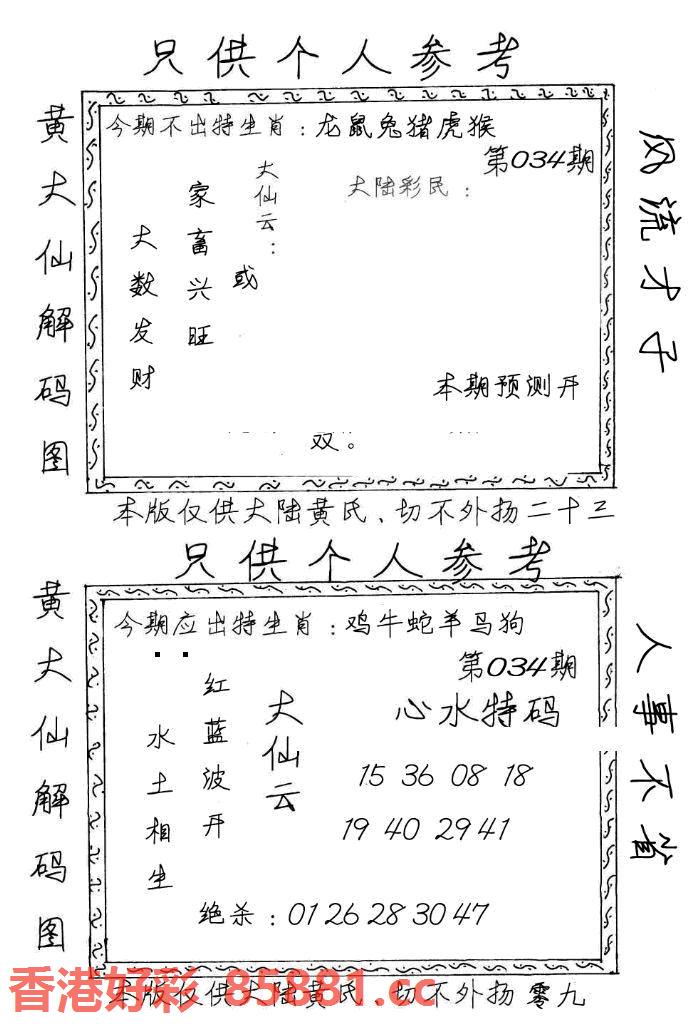 只供个人参考
黄大仙解码图
今期不出特生肖：龙鼠兔猪虎猴
第034期
大仙云：
大陆彩民：
家畜兴旺
或
大数发财
本期预测开
双。
风流才子
本版仅供大陆黄氏、切不外扬二十三
只供个人参考
黄大仙解码图
今期应出特生肖：鸡牛蛇羊马狗
第034期
大仙云
红蓝波开
水土相生
心水特码
15 36 08 18
19 40 29 41
绝杀：01 26 28 30 47
人事不省
本版仅供大陆黄氏、切不外扬零九
香港好彩 85881.cc